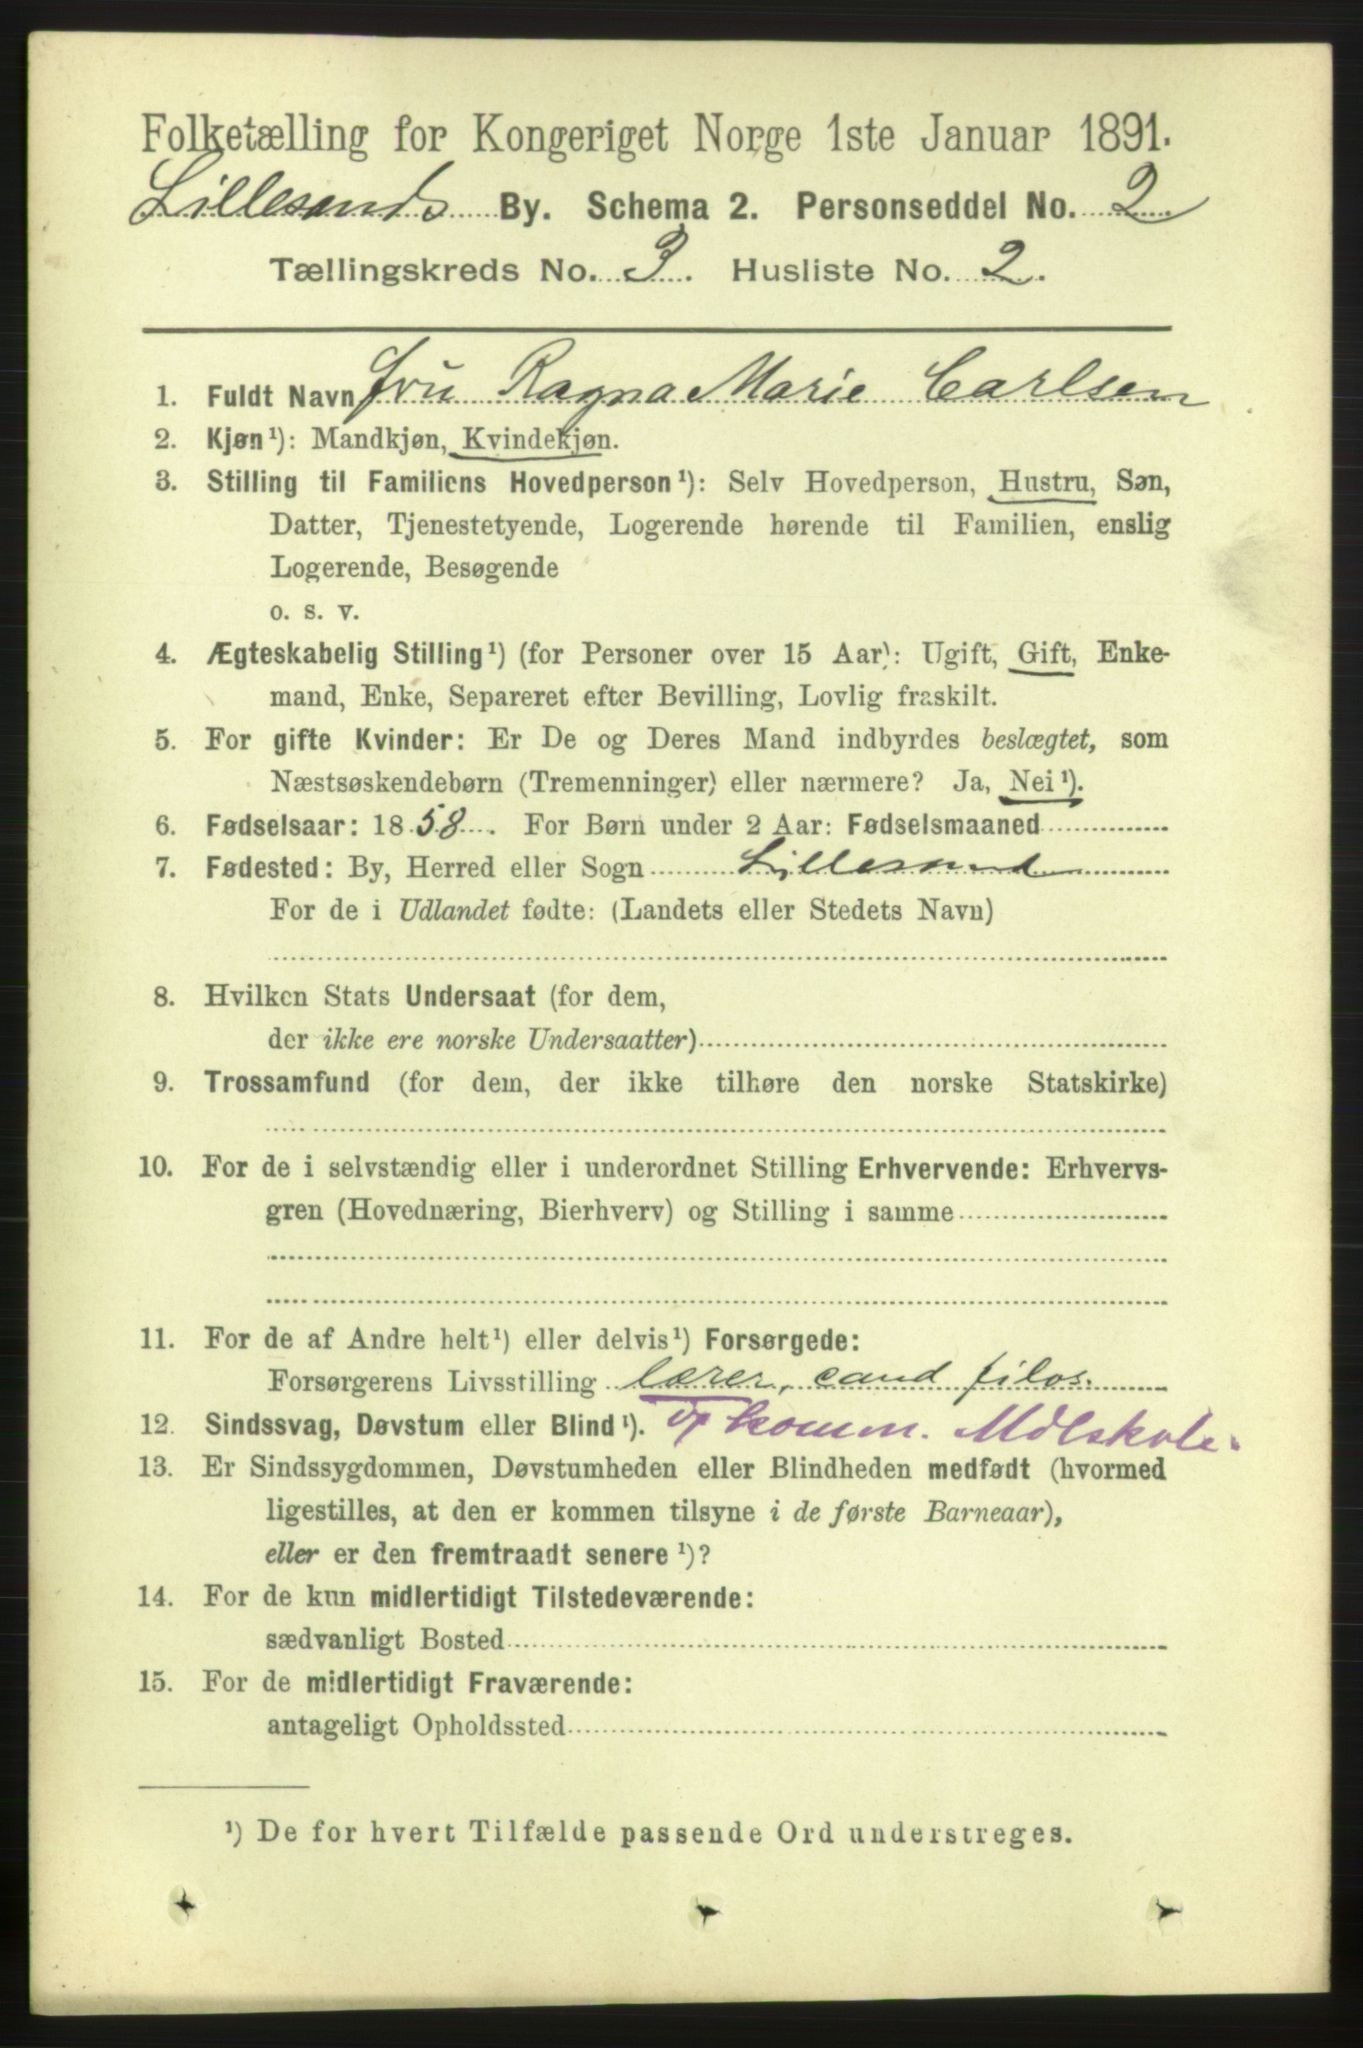 Folketælling for Kongeriget Norge 1ste Januar 1891.
Lillesands By. Schema 2. Personseddel No. 2
Tællingskreds No. 3. Husliste No. 2.
1. Fuldt Navn Fru Ragna Marie Carlsen
2. Kjøn¹): Mandkjøn, Kvindekjøn.
3. Stilling til Familiens Hovedperson¹): Selv Hovedperson, Hustru, Søn,
Datter, Tjenestetyende, Logerende hørende til Familien, enslig
Logerende, Besøgende
o. s. v.
4. Ægteskabelig Stilling¹) (for Personer over 15 Aar): Ugift, Gift, Enke-
mand, Enke, Separeret efter Bevilling, Lovlig fraskilt.
5. For gifte Kvinder: Er De og Deres Mand indbyrdes beslægtet, som
Næstsøskendebørn (Tremenninger) eller nærmere? Ja, Nei¹).
6. Fødselsaar: 1858. For Børn under 2 Aar: Fødselsmaaned
7. Fødested: By, Herred eller Sogn Lillesand
For de i Udlandet fødte: (Landets eller Stedets Navn)
8. Hvilken Stats Undersaat (for dem,
der ikke ere norske Undersaatter)
9. Trossamfund (for dem, der ikke tilhøre den norske Statskirke)
10. For de i selvstændig eller i underordnet Stilling Erhvervende: Erhvervs-
gren (Hovednæring, Bierhverv) og Stilling i samme
11. For de af Andre helt¹) eller delvis¹) Forsørgede:
Forsørgerens Livsstilling lærer, cand filos.
12. Sindssvag, Døvstum eller Blind¹). komm. Mdlskole.
13. Er Sindssygdommen, Døvstumheden eller Blindheden medfødt (hvormed
ligestilles, at den er kommen tilsyne i de første Barneaar),
eller er den fremtraadt senere¹)?
14. For de kun midlertidigt Tilstedeværende:
sædvanligt Bosted
15. For de midlertidigt Fraværende:
antageligt Opholdssted
¹) De for hvert Tilfælde passende Ord understreges.